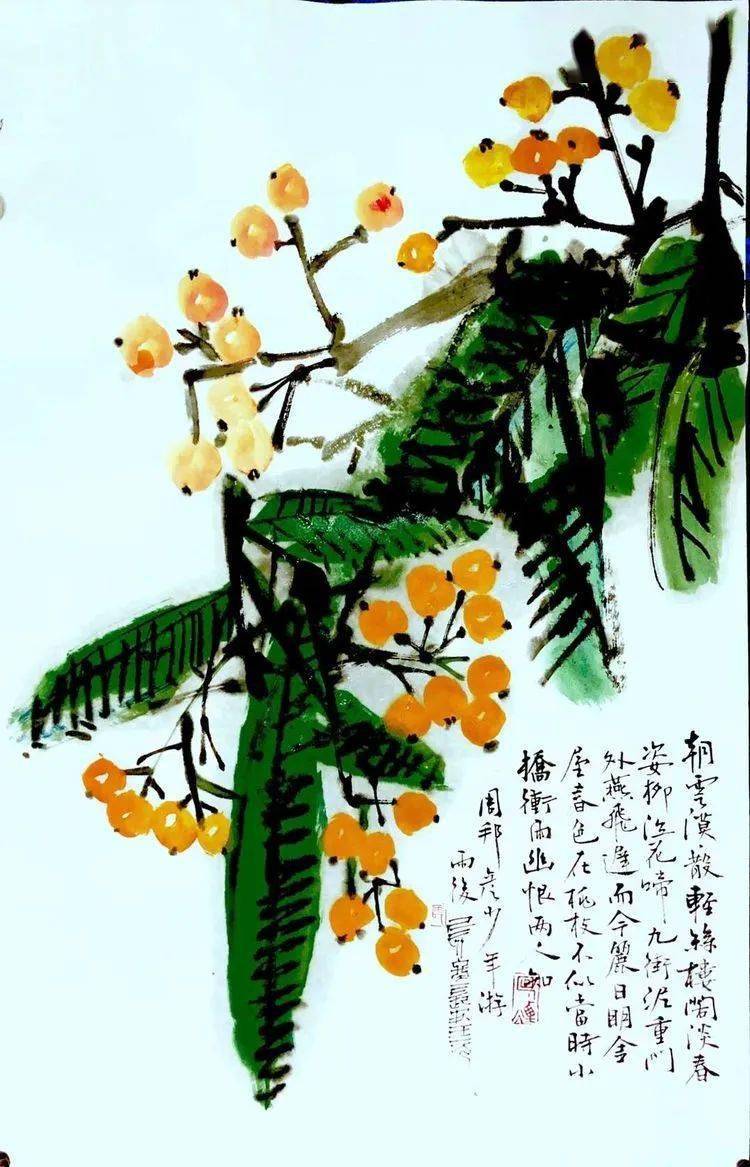 朝雲漠散輕絲樓閣淡春
姿柳泣花啼九街泥重門
外燕飛遲而今麗日明金
屋春色在桃枝不似當時小
橋衝雨幽恨两人知
周邦彥少年游
雨後